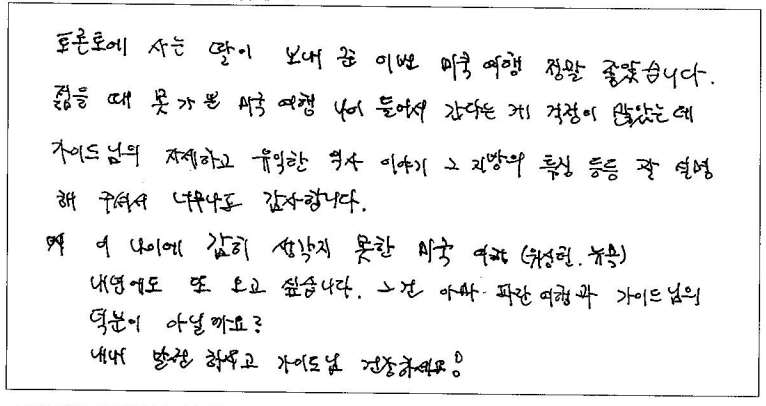 토론토에 사는 딸이 보내 준 이번 미국 여행 정말 좋았습니다.
젊을 때 못 가 본 미국 여행 나이 들어서 간다는 게 걱정이 많았는데
가이드님의 자세하고 유익한 역사 이야기 그 지방의 특징 등등 잘 설명
해 주셔서 너무나도 감사합니다.
이 나이에 감히 생각지 못한 미국 여행 (워싱턴. 뉴욕)
내년에도 또 오고 싶습니다. 그건 아마 파란여행과 가이드님의
덕분이 아닐까요?
내내 발전 하시고 가이드님 건강하세요!